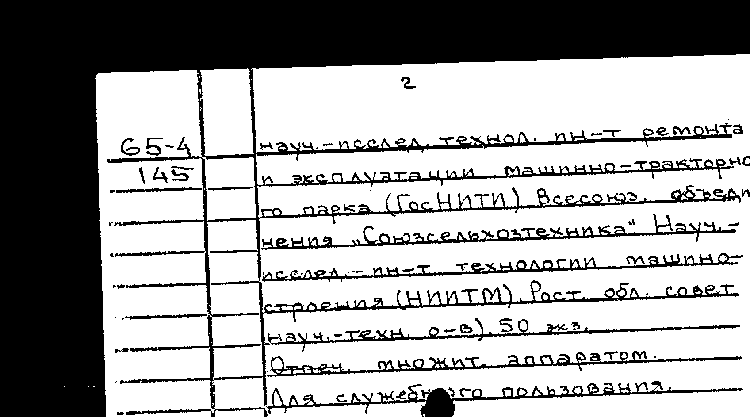 2
65-4
145
науч.-исслед. технол. ин-т ремонта
и эксплуатации машинно-тракторно
го парка (ГосНИТИ) Всесоюз. объеди
нения „Союзсельхозтехника" Науч.-
исслед.-ин-т технологии машино-
строения (НИИТМ). Рост. обл. совет
науч.-техн. о-в). 50 экз.
Отпеч. множит. аппаратом.
Для служебного пользования.